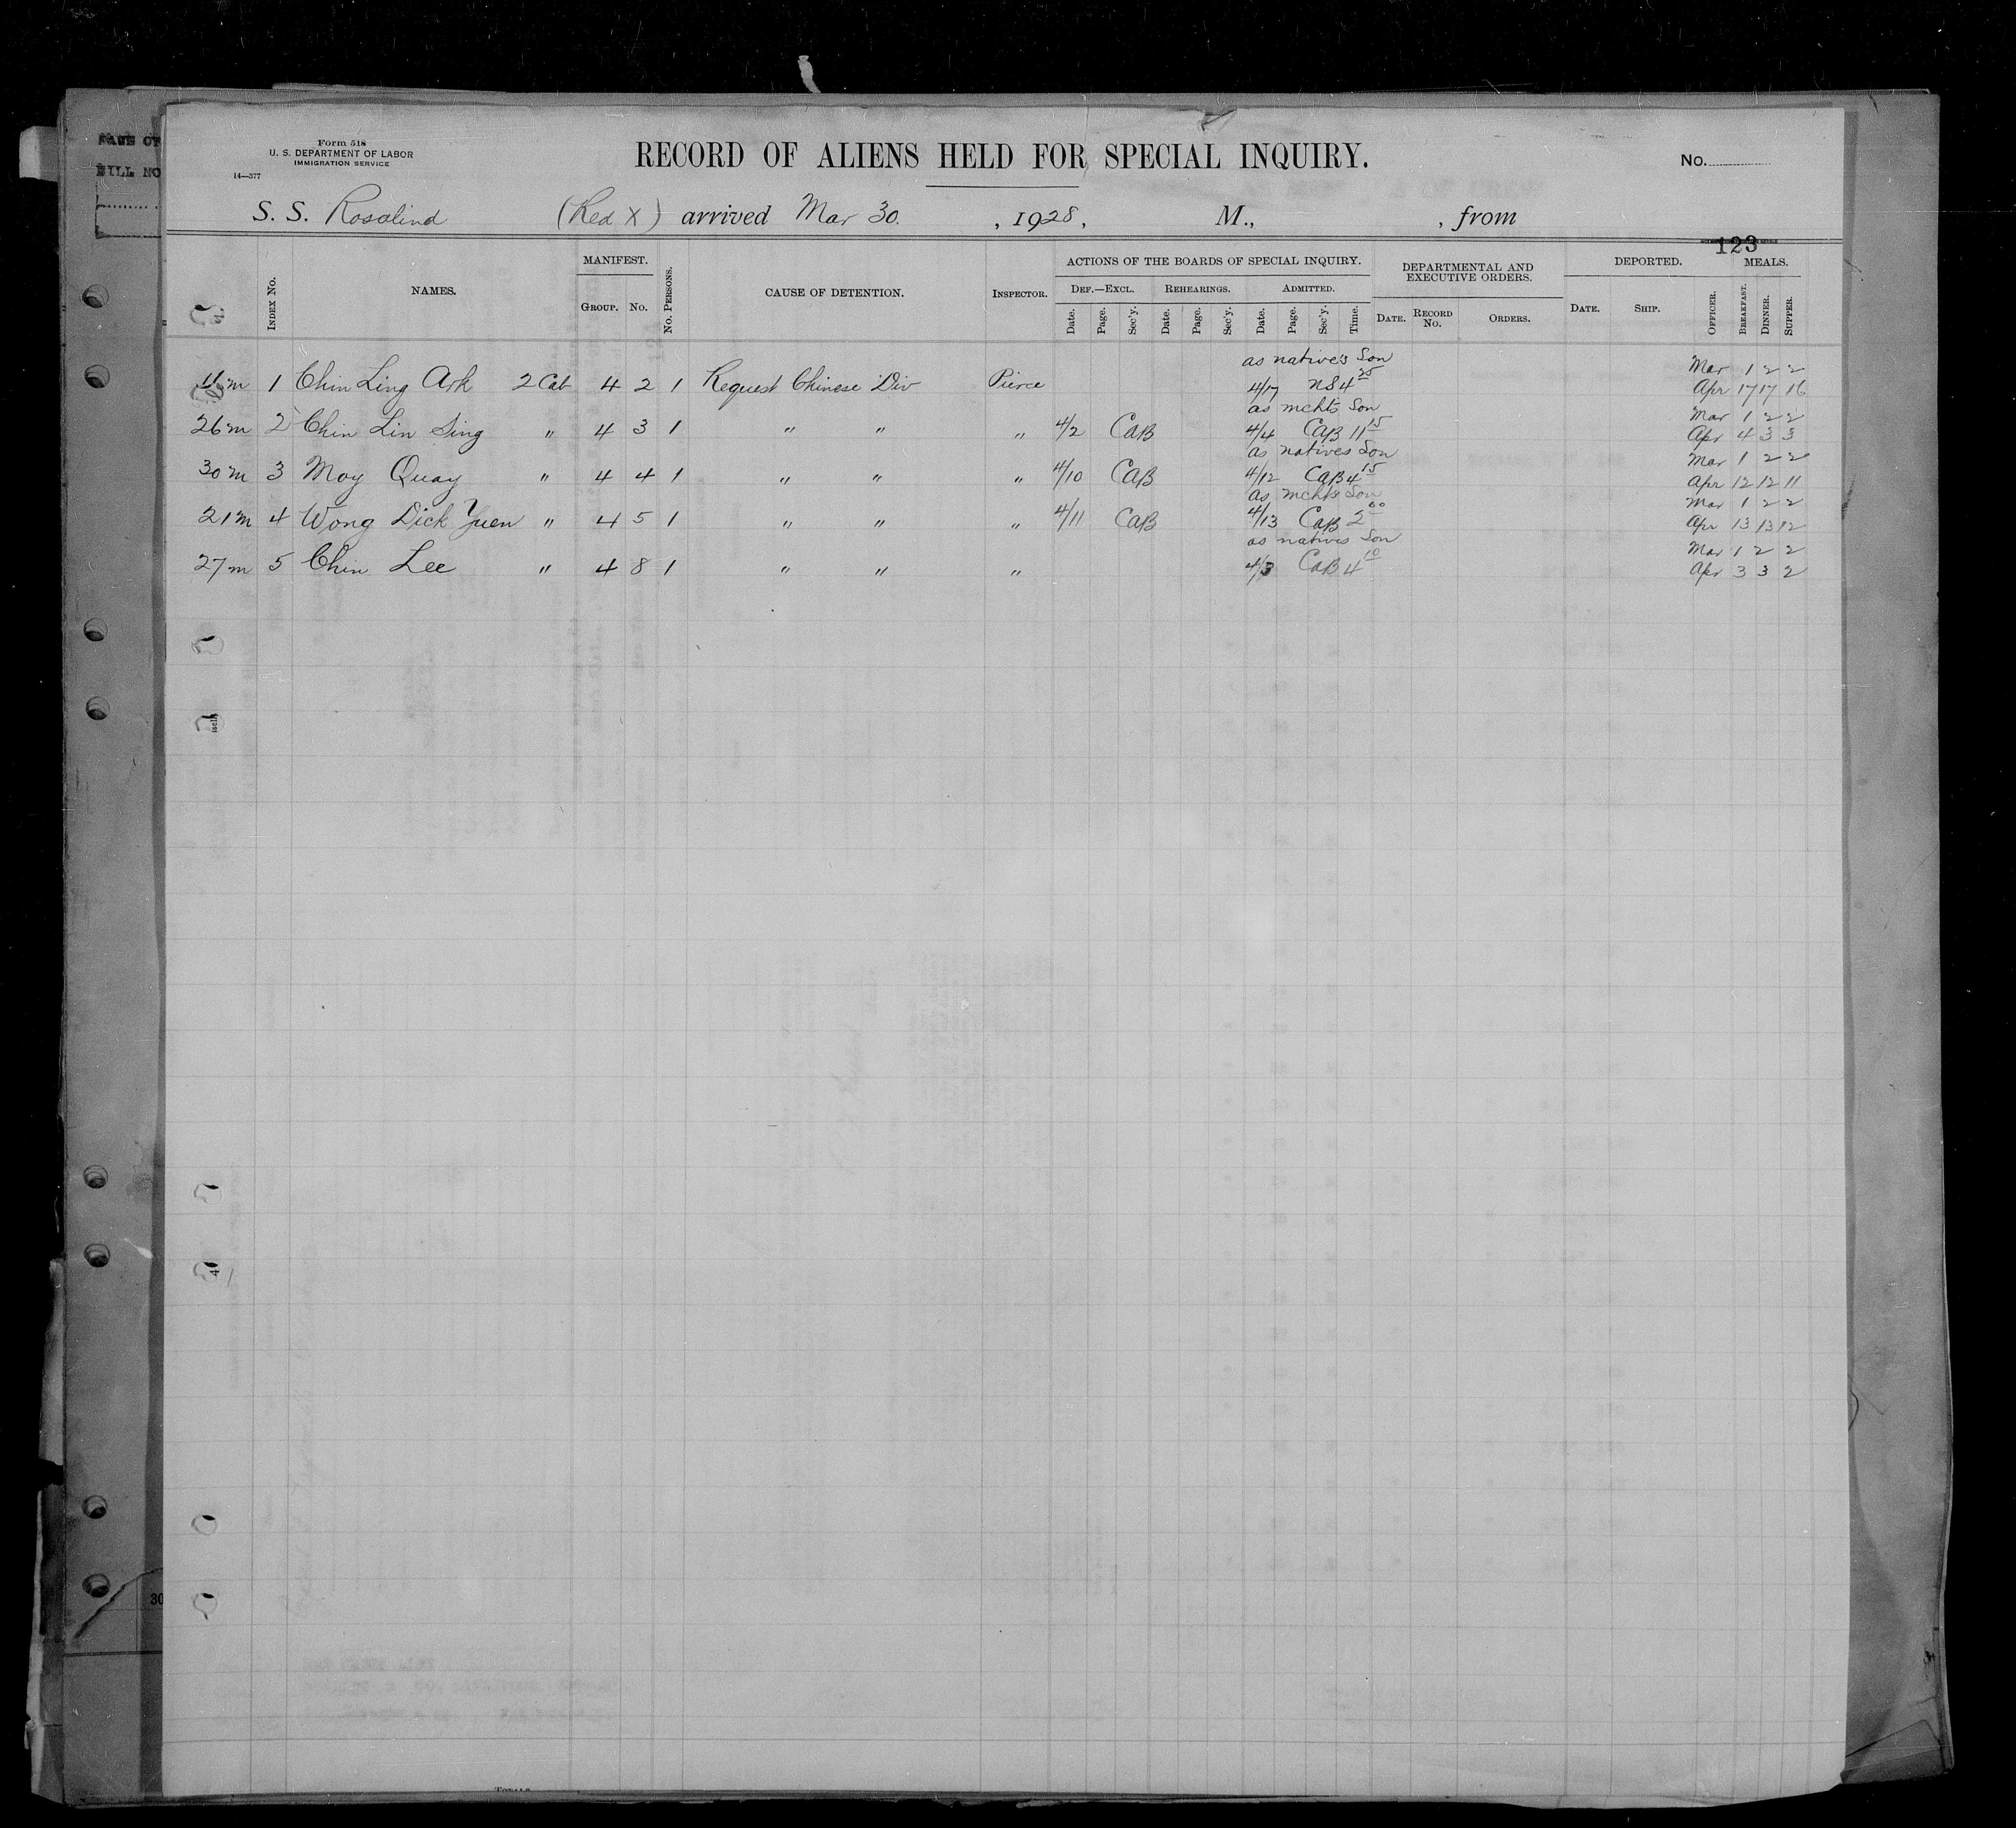 PAGE OF
BILL NO
Form 518
U. S. DEPARTMENT OF LABOR
IMMIGRATION SERVICE
14—377
RECORD OF ALIENS HELD FOR SPECIAL INQUIRY.
No.
S. S. Rosalind (Red X) arrived Mar 30. , 1928, M., , from
123
INDEX NO. NAMES. MANIFEST. GROUP. NO. NO. PERSONS. CAUSE OF DETENTION. INSPECTOR. ACTIONS OF THE BOARDS OF SPECIAL INQUIRY. DEPARTMENTAL AND EXECUTIVE ORDERS. DEPORTED. MEALS.
DEF.—EXCL. REHEARINGS. ADMITTED.
Date. Page. Sec'y. Date. Page. Sec'y. Date. Page. Sec'y. Time. DATE. RECORD NO. ORDERS. DATE. SHIP. OFFICER. BREAKFAST. DINNER. SUPPER.
as native's Son Mar 1 2 2
11 m 1 Chin Ling Ark 2 Cab 4 2 1 Request Chinese Div Pierce 4/17 NS 4 25 Apr 17 17 16
as mcht's Son Mar 1 2 2
26 m 2 Chin Lin Sing " 4 3 1 " " " 4/2 CAB 4/4 CAB 11 15 Apr 4 3 3
as natives Son Mar 1 2 2
30 m 3 Moy Quay " 4 4 1 " " " 4/10 CAB 4/12 CAB 4 15 Apr 12 12 11
as mchts Son Mar 1 2 2
21 m 4 Wong Dick Yuen " 4 5 1 " " " 4/11 CAB 4/13 CAB 2 00 Apr 13 13 12
as natives Son Mar 1 2 2
27 m 5 Chin Lee " 4 8 1 " " " 4/3 CAB 4 10 Apr 3 3 2
30
TOTALS